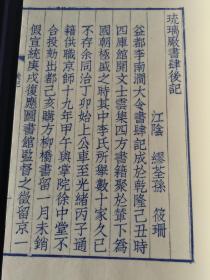 琉璃廠書肆後記
江陰 繆荃孫 筱珊
益都李南澗大令書肆記成於乾隆己丑時
四庫館開文士雲集四方書籍聚於輦下為
國朝極盛之時其中李氏所舉數十家久已
不存余同治丁卯始上公車至光緒丙子通
籍供職京師十九年甲午與掌院徐中堂不
合投劾出都己亥購方柳橋書留一月未銷
假宣統庚戌復應圖書館監督之徵留京一